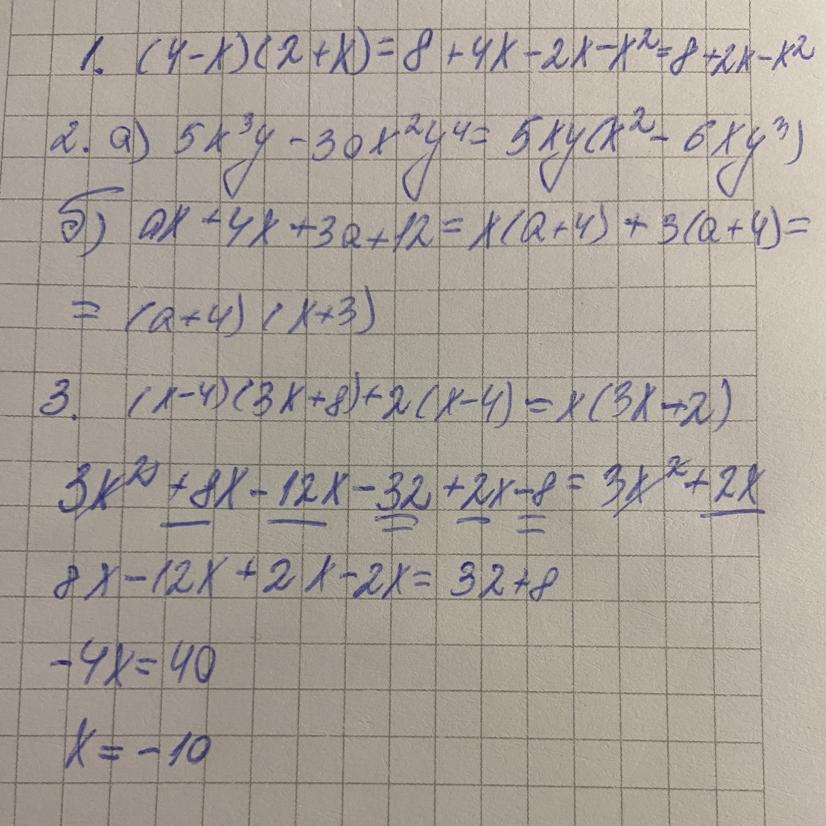 1. (4-x)(2+x)=8+4x-2x-x²=8+2x-x²
2. а) 5x³y-30x²y⁴=5xy(x²-6xy³)
б) ax+4x+3a+12=x(a+4)+3(a+4)=
=(a+4)(x+3)
3. (x-4)(3x+8)+2(x-4)=x(3x+2)
3x²+8x-12x-32+2x-8=3x²+2x
8x-12x+2x-2x=32+8
-4x=40
x=-10